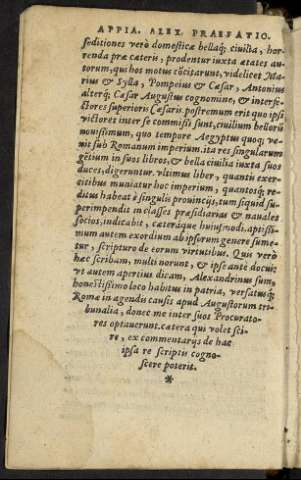 APPIA. ALEX. PRAEFATIO.
seditiones verò domesticæ bellaq́; ciuilia, hor-
renda præ cæteris, prodentur iuxta ætates au-
torum, qui hos motus cõcitarunt, videlicet Ma-
rius & Sylla, Pompeius & Cæsar, Antonius
alterq́; Cæsar Augustus cognomine, & interfe-
ctores superioris Cæsaris postremum erit quo ipsi
victores inter se commissi sunt, ciuilium bellorũ
nouissimum, quo tempore Aegyptus quoq; ve-
nit sub Romanum imperium. ita res singularum
gẽtium in suos libros, & bella ciuilia iuxta suos
duces, digeruntur. vltimus liber, quantis exer-
citibus muniatur hoc imperium, quantosq́; re-
ditus habeat è singulis prouincijs, tum siquid su-
perimpendit in classes præsidiarias & nauales
socios, indicabit, cæteráque huiusmodi. aptissi-
mum autem exordium ab ipsorum genere sume-
tur, scripturo de eorum virtutibus. Quis verò
hæc scribam, multi norunt, & ipse antè docui:
vt autem apertius dicam, Alexandrinus sum,
honestissimo loco habitus in patria, versatusq́;
Romæ in agendis causis apud Augustorum tri-
bunalia, donec me inter suos Procurato-
res optauerunt. cætera qui volet sci-
re, ex commentarijs de hac
ipsa re scriptis cogno-
scere poterit.
*